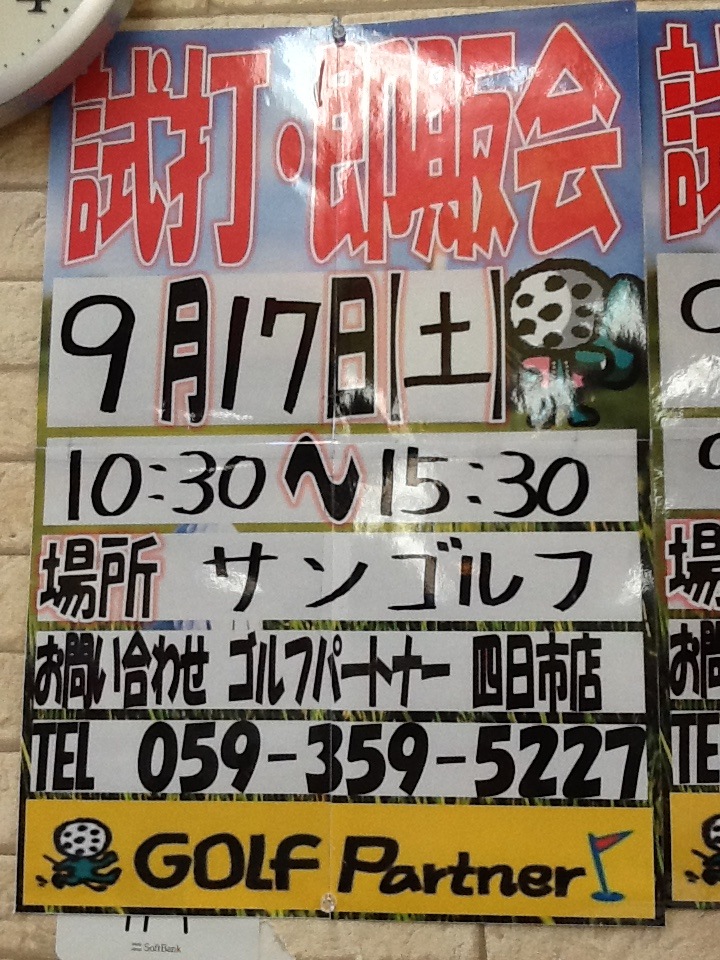 試打・即販会
9月17日(土)
10:30〜15:30
場所 サンゴルフ
お問い合わせ ゴルフパートナー 四日市店
TEL 059-359-5227
GOLF Partner
SoftBank